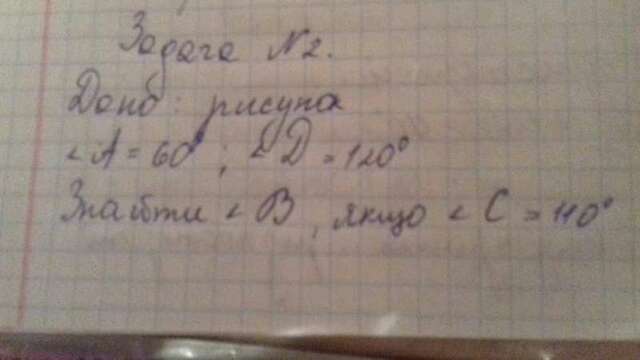 Задача N2.
Дано: рисунок
<A = 60°; <D = 120°
Знайти <B, якщо <C = 110°